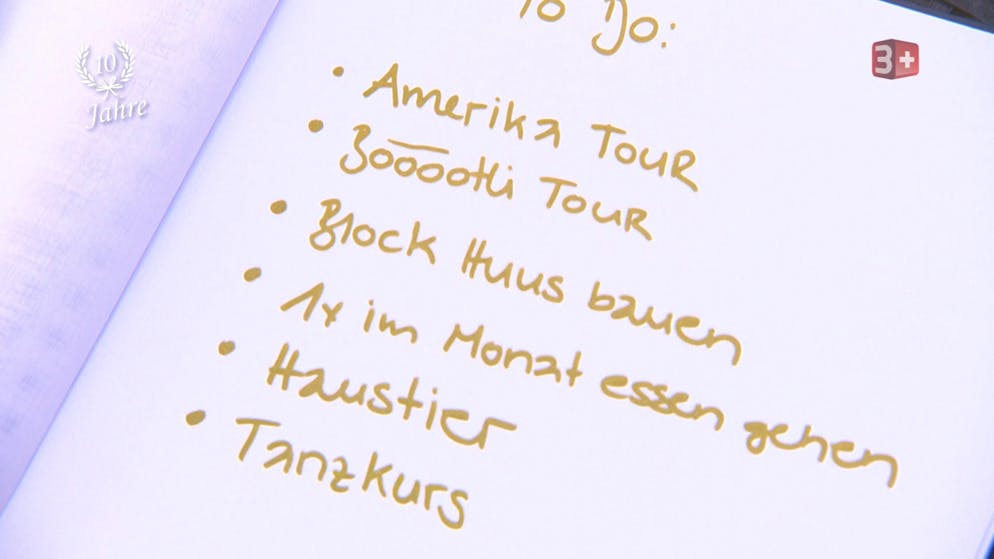 To Do:
10
Jahre
3+
• Amerika Tour
• Böööötli Tour
• Block Huus bauen
• 1x im Monat essen gehen
• Haustier
• Tanzkurs